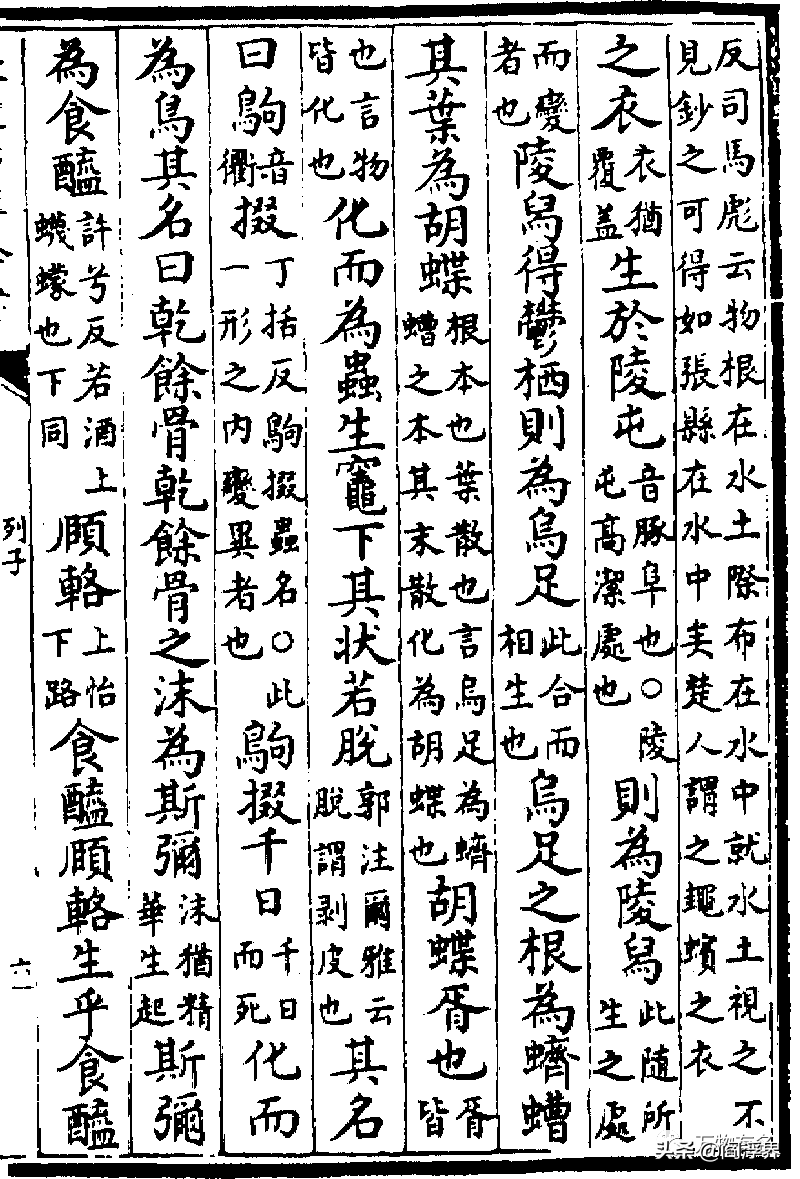 反司馬彪云物根在水土際布在水中就水土視之不
見鈔之可得如張縣在水中矣楚人謂之䵷蠙之衣
之衣衣猶覆蓋生於陵屯音豚阜也○陵屯高潔處也則為陵舄此隨所生之處
而變者也陵舄得鬱栖則為烏足此合而相生也烏足之根為蠐螬
其葉為胡蝶根本也葉散也言烏足為蠐螬之本其末散化為胡蝶也胡蝶胥也胥皆
也言物皆化也化而為蟲生竈下其狀若脫郭注爾雅云脫謂剥皮也其名
曰鴝音衢掇丁括反鴝掇蟲名○此一形之内變異者也鴝掇千日千日而死化而
為鳥其名曰乾餘骨乾餘骨之沬為斯彌沬猶精華生起斯彌
為食醯許兮反若酒上蠛蠓也下同頤輅上怡下路食醯頤輅生乎食醯
列子
六一